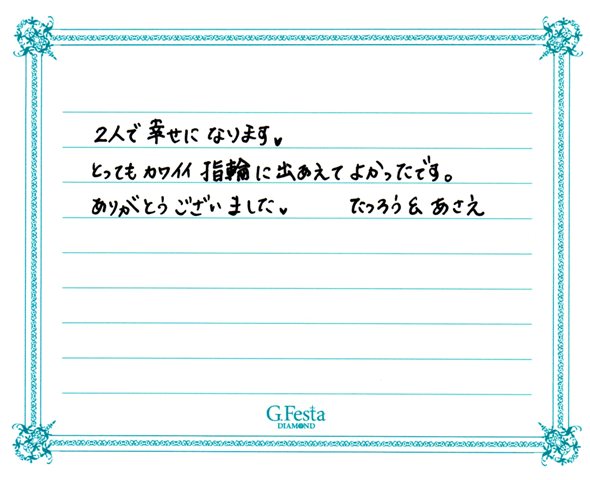 2人で幸せになります♥
とってもカワイイ指輪に出あえてよかったです。
ありがとうございました♥ たつろう & あさえ
G.Festa
DIAMOND